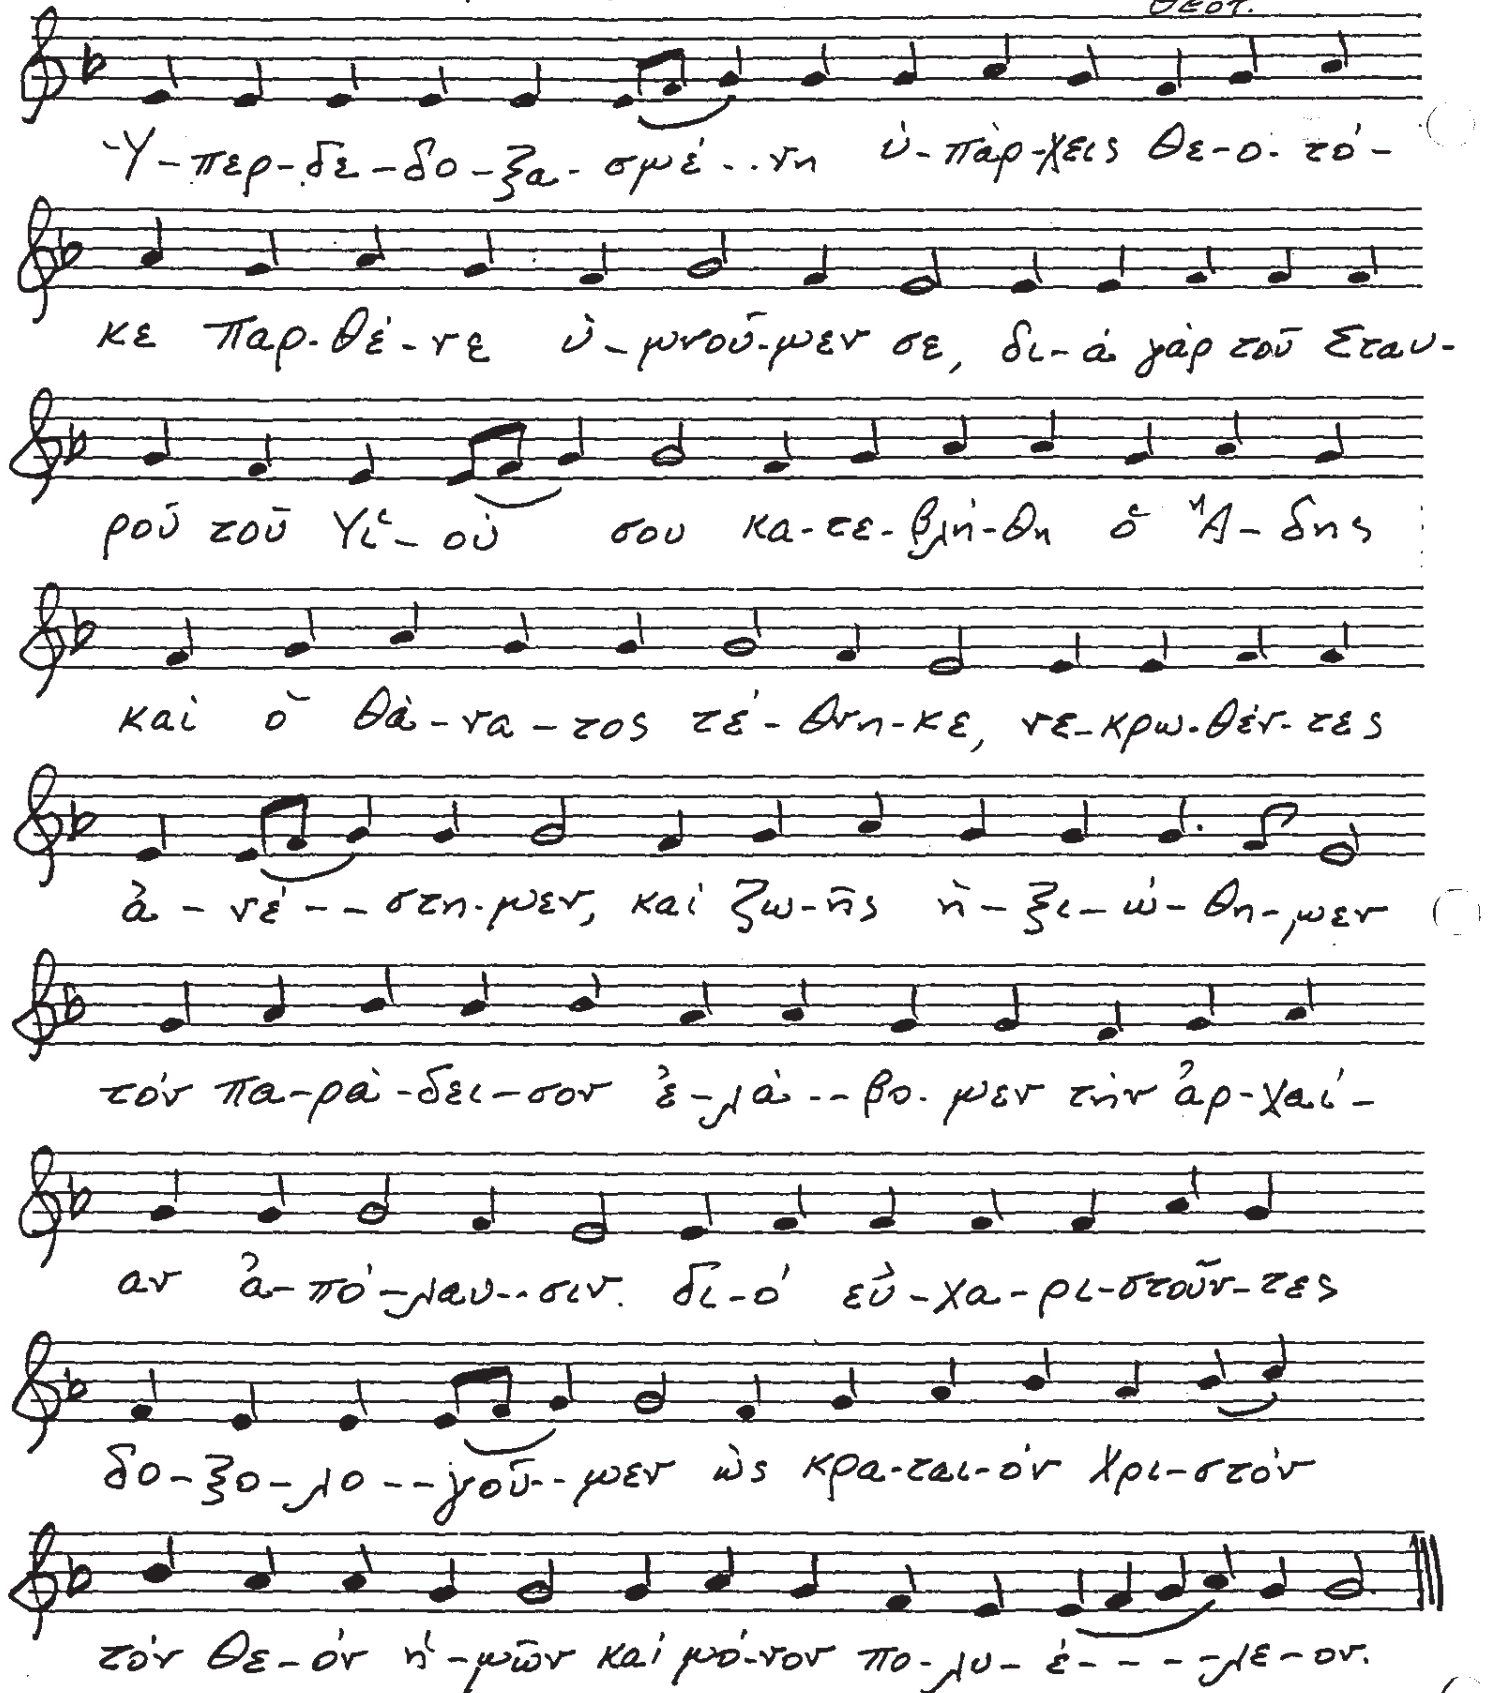 Θεοτ.
Ὑ-περ-δε-δο-ξα-σμέ--νη ὑ-πάρ-χεις Θε-ο-τό-
κε Παρ-θέ-νε ὑ-μνοῦ-μεν σε, δι-ά γάρ τοῦ Σταυ-
ροῦ τοῦ Υἱ-οῦ σου κα-τε-βλή-θη ὁ ᾍ-δης
καί ὁ θά-να-τος τέ-θνη-κε, νε-κρω-θέν-τες
ἀ-νέ--στη-μεν, καί ζω-ῆς ἠ-ξι-ώ-θη-μεν
τόν πα-ρά-δει-σον ἐ-λά--βο-μεν τήν ἀρ-χαί-
αν ἀ-πό-λαυ--σιν. δι-ό εὐ-χα-ρι-στοῦν-τες
δο-ξο-λο--γοῦ--μεν ὡς κρα-ται-όν Χρι-στόν
τόν Θε-όν ἡ-μῶν καί μό-νον πο-λυ-έ----λε-ον.